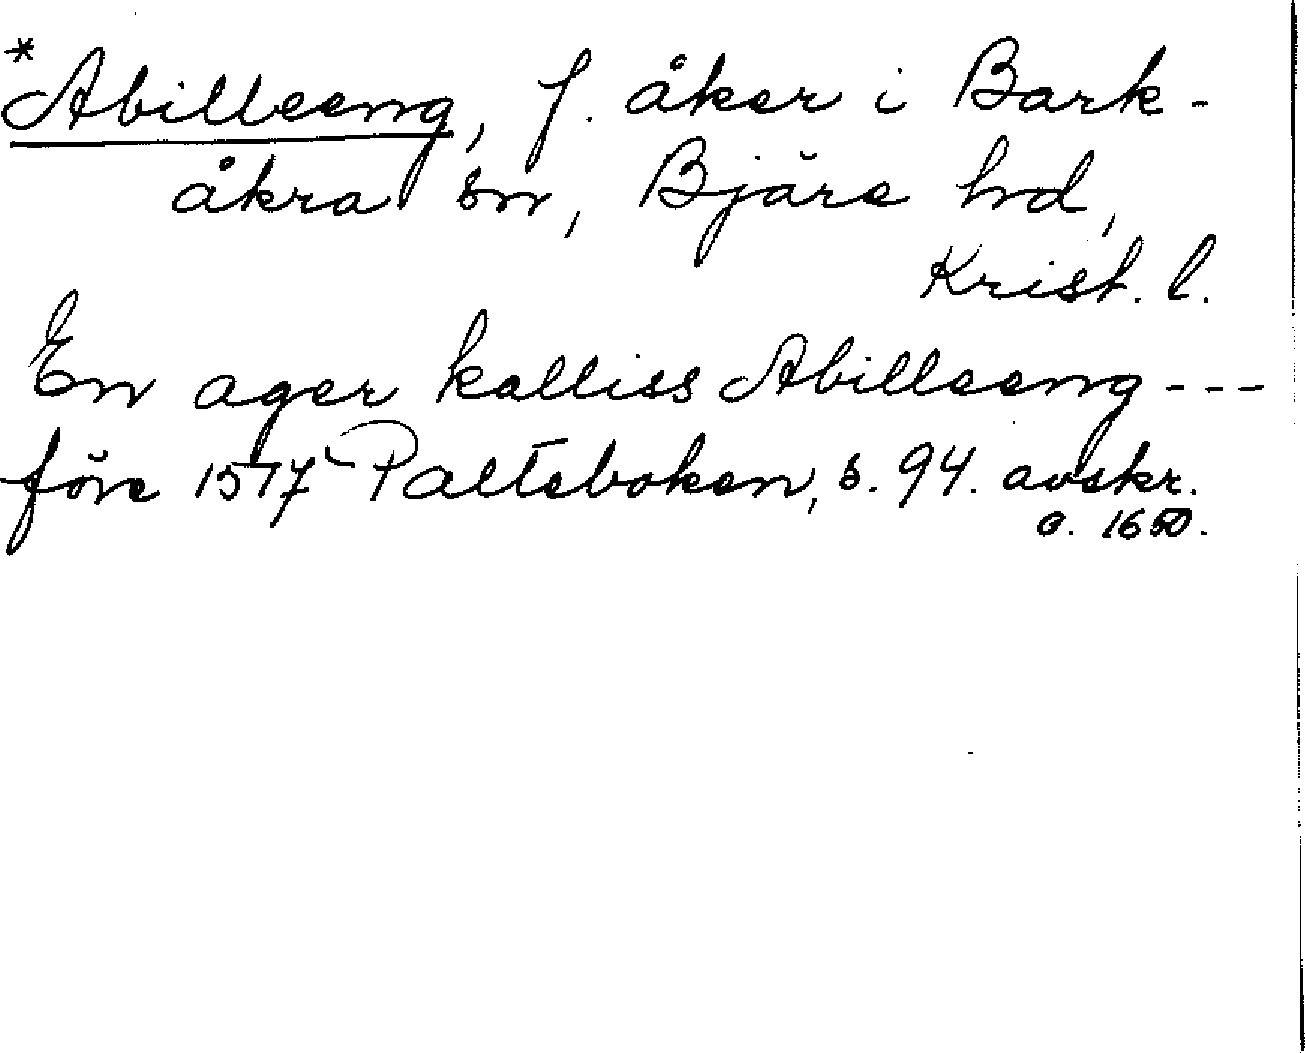 *Abilleeng, f. åker i Bark-
åkra sn, Bjäre hd,
Krist. l.
En ager kalliss Abilleeng ---
före 1577 Palteboken, s. 94. avskr.
o. 1650.